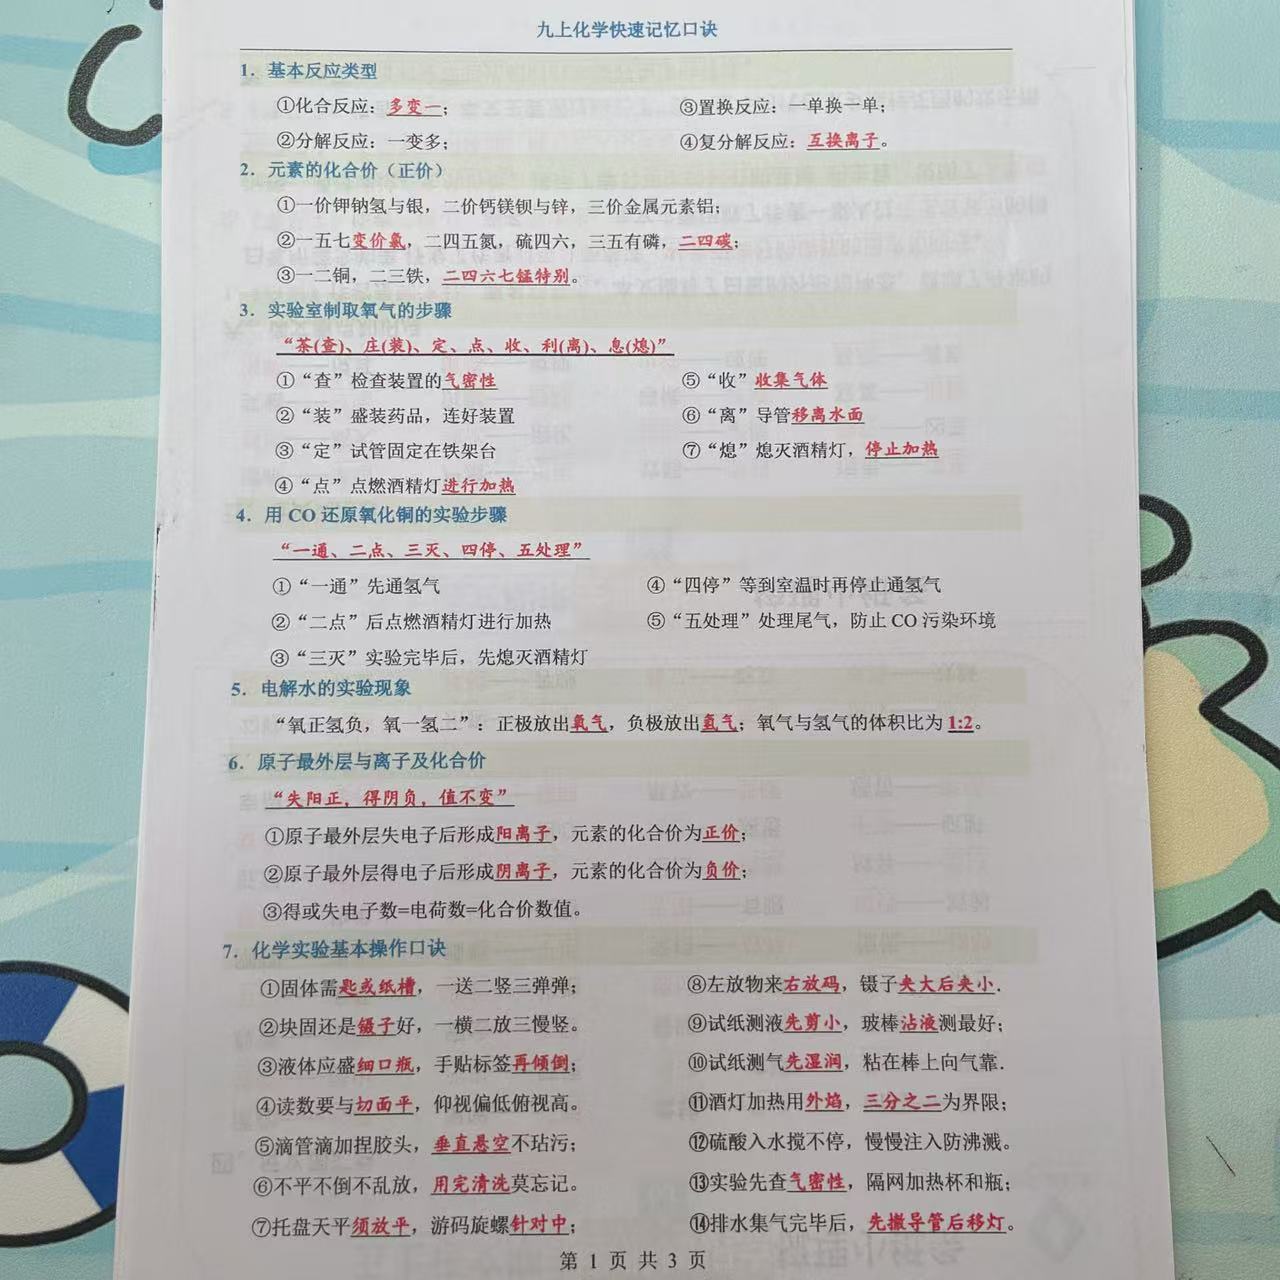 九上化学快速记忆口诀
1．基本反应类型
①化合反应：多变一；
③置换反应：一单换一单；
②分解反应：一变多；
④复分解反应：互换离子。
2．元素的化合价（正价）
①一价钾钠氢与银，二价钙镁钡与锌，三价金属元素铝；
②一五七变价氯，二四五氮，硫四六，三五有磷，二四碳；
③一二铜，二三铁，二四六七锰特别。
3．实验室制取氧气的步骤
“茶(查)、庄(装)、定、点、收、利(离)、息(熄)”
①“查”检查装置的气密性
⑤“收”收集气体
②“装”盛装药品，连好装置
⑥“离”导管移离水面
③“定”试管固定在铁架台
⑦“熄”熄灭酒精灯，停止加热
④“点”点燃酒精灯进行加热
4．用 CO 还原氧化铜的实验步骤
“一通、二点、三灭、四停、五处理”
①“一通”先通氢气
④“四停”等到室温时再停止通氢气
②“二点”后点燃酒精灯进行加热
⑤“五处理”处理尾气，防止 CO 污染环境
③“三灭”实验完毕后，先熄灭酒精灯
5．电解水的实验现象
“氧正氢负，氧一氢二”：正极放出氧气，负极放出氢气；氧气与氢气的体积比为 1:2。
6．原子最外层与离子及化合价
“失阳正，得阴负，值不变”
①原子最外层失电子后形成阳离子，元素的化合价为正价；
②原子最外层得电子后形成阴离子，元素的化合价为负价；
③得或失电子数=电荷数=化合价数值。
7．化学实验基本操作口诀
①固体需匙或纸槽，一送二竖三弹弹；
⑧左放物来右放码，镊子夹大后夹小.
②块固还是镊子好，一横二放三慢竖。
⑨试纸测液先剪小，玻棒沾液测最好；
③液体应盛细口瓶，手贴标签再倾倒；
⑩试纸测气先湿润，粘在棒上向气靠.
④读数要与切面平，仰视偏低俯视高。
⑪酒灯加热用外焰，三分之二为界限；
⑤滴管滴加捏胶头，垂直悬空不玷污；
⑫硫酸入水搅不停，慢慢注入防沸溅。
⑥不平不倒不乱放，用完清洗莫忘记。
⑬实验先查气密性，隔网加热杯和瓶；
⑦托盘天平须放平，游码旋螺针对中；
⑭排水集气完毕后，先撤导管后移灯。
第 1 页 共 3 页